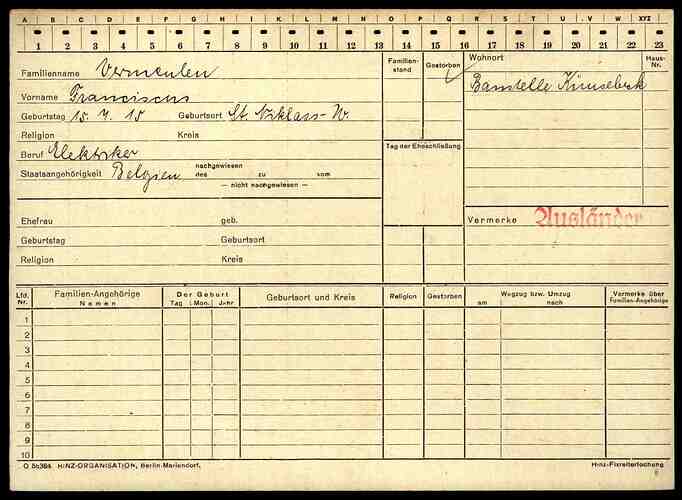 A B C D E F G H I J K L M N O P Q R S T U V W XYZ
1 2 3 4 5 6 7 8 9 10 11 12 13 14 15 16 17 18 19 20 21 22 23
Familienname Vermeulen
Familien-stand
Gestorben
Wohnort
Haus-Nr.
Vorname Franciscus
Baustelle
Geburtstag 15. 4. 15 Geburtsort St. Niklass-W.
Religion Kreis
Beruf Elektriker
Tag der Eheschließung
Staatsangehörigkeit Belgien nachgewiesen
des zu vom
— nicht nachgewiesen —
Ehefrau geb.
Vermerke Ausländer
Geburtstag Geburtsort
Religion Kreis
Lfd. Nr.
Familien-Angehörige
Namen
Der Geburt
Tag Mon. Jahr
Geburtsort und Kreis
Religion
Gestorben
Wegzug bzw. Umzug
am nach
Vermerke über
Familien-Angehörige
1
2
3
4
5
6
7
8
9
10
HINZ-ORGANISATION, Berlin-Mariendorf.
Hinz-Fixreiterlochung